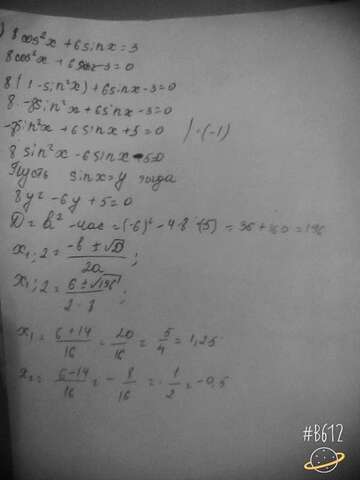 8cos²x + 6sinx = 3
8cos²x + 6sinx - 3 = 0
8(1 - sin²x) + 6sinx - 3 = 0
8 - 8sin²x + 6sinx - 3 = 0
-8sin²x + 6sinx + 5 = 0 | · (-1)
8sin²x - 6sinx - 5 = 0
Пусть sinx = y тогда
8y² - 6y + 5 = 0
D = b² - 4ac = (-6)² - 4·8·(-5) = 36 + 160 = 196
x₁;₂ = (-b ± √D) / 2a ;
x₁;₂ = (6 ± √196) / 2·8 ;
x₁ = (6 + 14) / 16 = 20/16 = 5/4 = 1,25
x₂ = (6 - 14) / 16 = - 8/16 = - 1/2 = -0,5
#B612